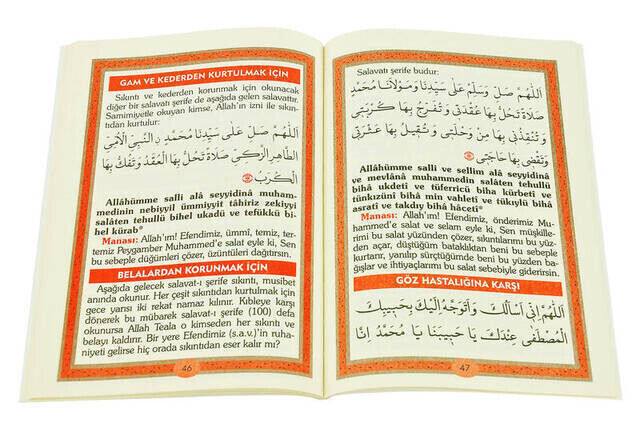 GAM VE KEDERDEN KURTULMAK İÇİN
Sıkıntı ve kederden korunmak için okunacak
diğer bir salavatı şerife de aşağıda gelen salavattır.
Samimiyetle okuyan kimse, Allah'ın izni ile sıkın-
tıdan kurtulur:
اَللّٰهُمَّ صَلِّ عَلٰى سَيِّدِنَا مُحَمَّدٍ ࣙالنَّبِيِّ الْاُمِّيِّ
الطَّاهِرِ الزَّكِيِّ صَلَاةً تُحَلُّ بِهَا الْعُقَدُ وَتُفَكُّ بِهَا
الْكُرَبُ
Allâhümme salli alâ seyyidinâ muham-
medinin nebiyyil ümmiyyit tâhiriz zekiyyi
salâten tehullü bihel ukadü ve tefükkü bi-
hel kürab*
Manası: Allah'ım! Efendimiz, ümmî, temiz, ter-
temiz Peygamber Muhammed'e salat eyle ki, Sen
bu sebeple düğümleri çözer, üzüntüleri dağıtırsın.
BELALARDAN KORUNMAK İÇİN
Aşağıda gelecek salavat-ı şerife sıkıntı, musibet
anında okunur. Her çeşit sıkıntıdan kurtulmak için
gece yarısı iki rekat namaz kılınır. Kıbleye karşı
dönerek bu mübarek salavat-ı şerife (100) defa
okunursa Allah Teala o kimseden her sıkıntı ve
belayı kaldırır. Bir yere Efendimiz (s.a.v.)'in ruha-
niyeti gelirse hiç orada sıkıntıdan eser kalır mı?
46
Salavatı şerife budur:
اَللّٰهُمَّ صَلِّ وَسَلِّمْ عَلٰى سَيِّدِنَا وَمَوْلَانَا مُحَمَّدٍ
صَلَاةً تَحُلُّ بِهَا عُقْدَتِي وَتُفَرِّجُ بِهَا كُرْبَتِي
وَتُنْقِذُنِي بِهَا مِنْ وَحْلَتِي وَتُقِيلُ بِهَا عَثْرَتِي
وَتَقْضِي بِهَا حَاجَتِي
Allâhümme salli ve sellim alâ seyyidinâ
ve mevlânâ muhammedin salâten tehullü
bihâ ukdetî ve tüferricü biha kürbeti ve
tünkızüni bihâ min vahleti ve tükıylü bihâ
asratî ve takdıy bihâ hâcetî*
Manası: Allah'ım! Efendimiz, önderimiz Mu-
hammed'e salat ve selam eyle ki, Sen müşkille-
rimi bu salat yüzünden çözer, sıkıntılarımı bu yüz-
den açar, düştüğüm bataklıktan beni bu sebeple
kurtarır, yanılıp sürçtüğümde beni bu yüzden ba-
ğışlar ve ihtiyaçlarımı bu salat sebebiyle giderirsin.
GÖZ HASTALIĞINA KARŞI
اَللّٰهُمَّ اِنِّي اَسْاَلُكَ وَاَتَوَجَّهُ اِلَيْكَ بِحَبِيبِكَ
الْمُصْطَفٰى عِنْدَكَ يَا حَبِيبَنَا يَا مُحَمَّدُ اِنَّا
47